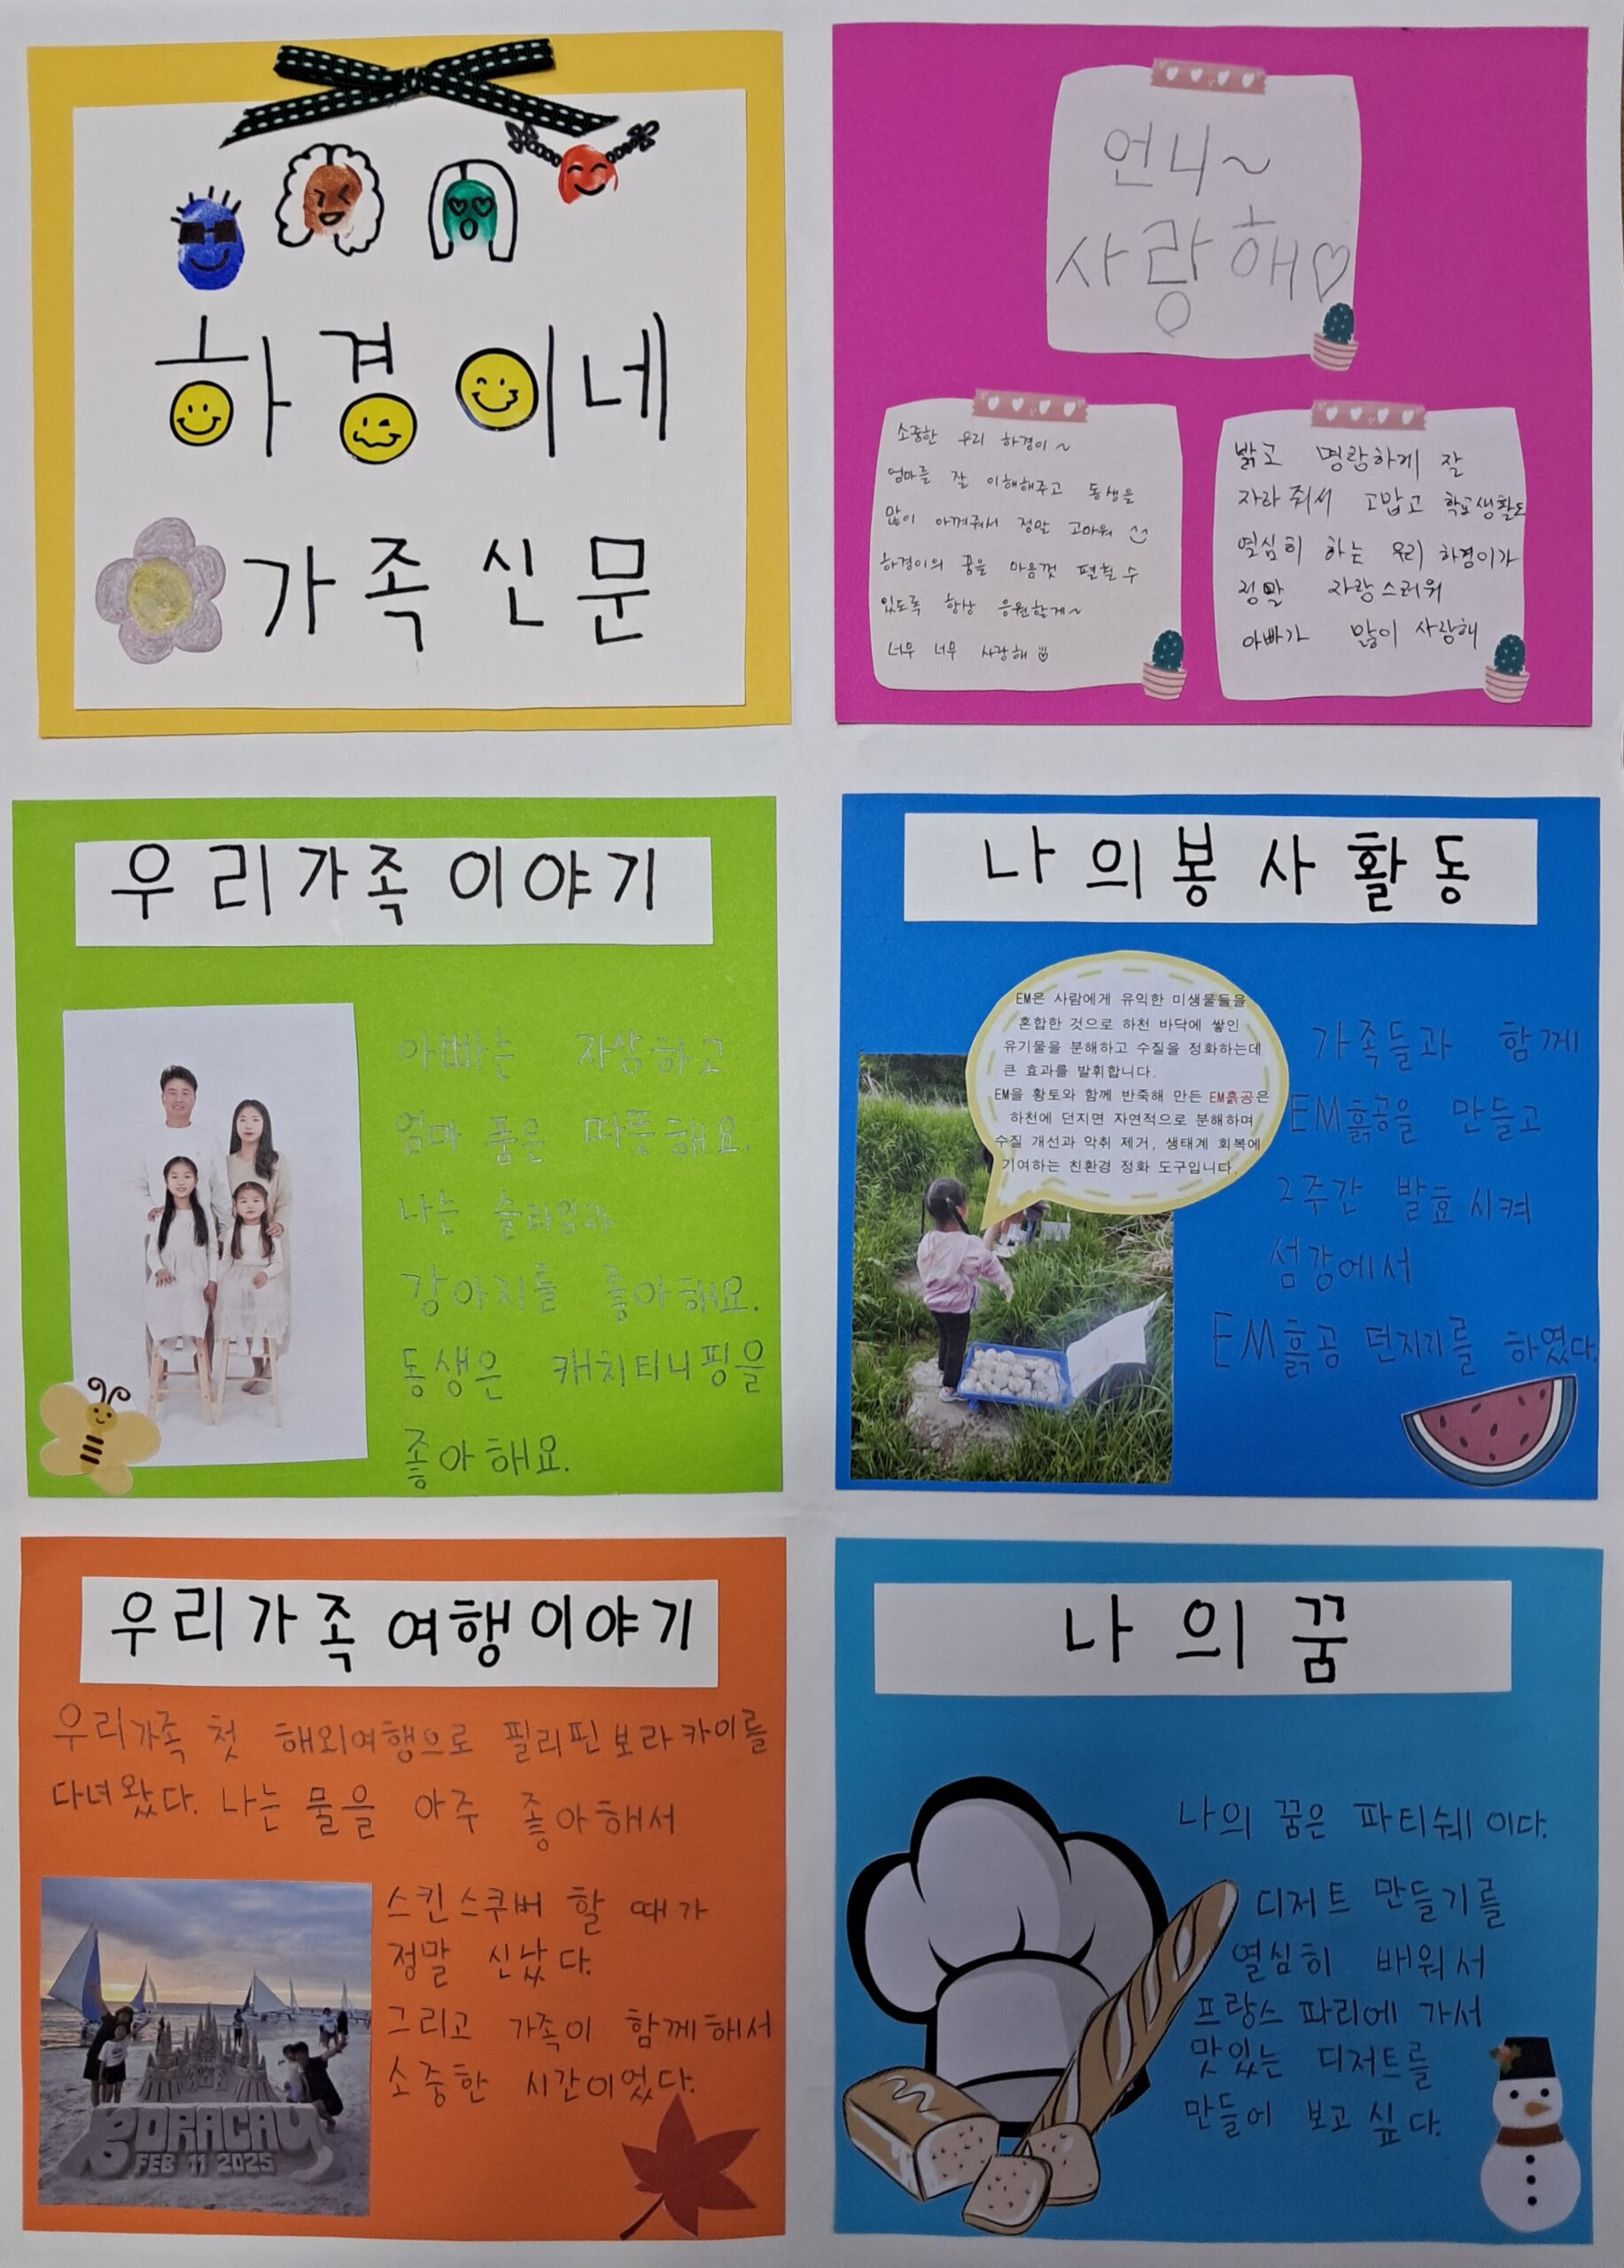 하경이네
가족신문
언니~
사랑해♡
소중한 우리 하경이~
엄마를 잘 이해해주고 동생을
많이 아껴줘서 정말 고마워
하경이의 꿈을 마음껏 펼칠 수
있도록 항상 응원할게~
너무 너무 사랑해
밝고 명랑하게 잘
자라줘서 고맙고 학교생활도
열심히 하는 우리 하경이가
정말 자랑스러워
아빠가 많이 사랑해
우리가족 이야기
아빠는 자상하고
엄마 품은 따뜻해요.
나는 슬라임과
강아지를 좋아해요.
동생은 캐치티니핑을
좋아해요.
나의 봉사 활동
EM은 사람에게 유익한 미생물들을
혼합한 것으로 하천 바닥에 쌓인
유기물을 분해하고 수질을 정화하는데
큰 효과를 발휘합니다.
EM을 황토와 함께 반죽해 만든 EM흙공은
하천에 던지면 자연적으로 분해하며
수질 개선과 악취 제거, 생태계 회복에
기여하는 친환경 정화 도구입니다.
가족들과 함께
EM흙공을 만들고
2주간 발효시켜
섬강에서
EM흙공 던지기를 하였다.
우리가족 여행이야기
우리가족 첫 해외여행으로 필리핀 보라카이를
다녀왔다. 나는 물을 아주 좋아해서
스킨스쿠버 할 때가
정말 신났다.
그리고 가족이 함께해서
소중한 시간이었다.
BORACAY
FEB 11 2025
나의 꿈
나의 꿈은 파티쉐이다.
디저트 만들기를
열심히 배워서
프랑스 파리에 가서
맛있는 디저트를
만들어 보고 싶다.